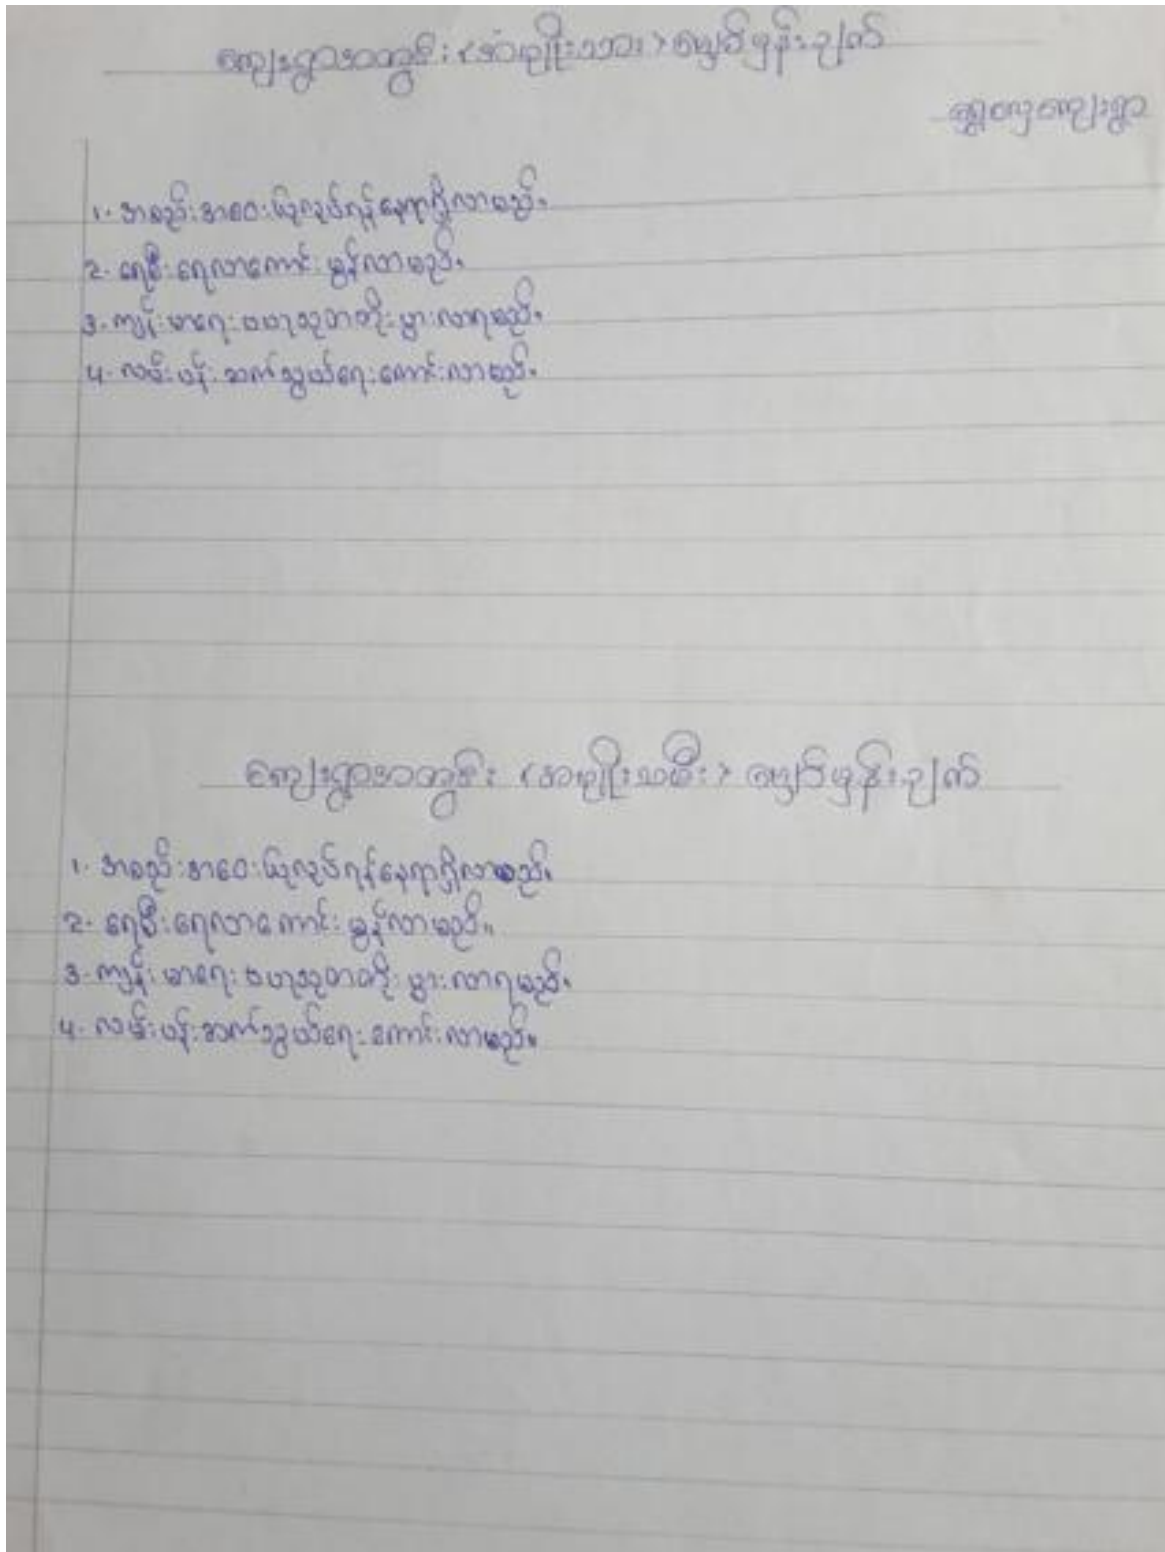 ကျေးရွာအတွင်း (အမျိုးသား) မျှော်မှန်းချက်
ရွှေလှေကျေးရွာ
၁. အစည်းအဝေးပြုလုပ်ရန်နေရာရှိလာမည်။
2. ရေစီးရေလာကောင်းမွန်လာမည်။
3. ကျန်းမာရေးဗဟုသုတတိုးပွားလာရမည်။
4. လမ်းပန်းဆက်သွယ်ရေးကောင်းလာမည်။
ကျေးရွာအတွင်း (အမျိုးသမီး) မျှော်မှန်းချက်
1. အစည်းအဝေးပြုလုပ်ရန်နေရာရှိလာမည်။
2. ရေစီးရေလာကောင်းမွန်လာမည်။
3. ကျန်းမာရေးဗဟုသုတတိုးပွားလာရမည်။
4. လမ်းပန်းဆက်သွယ်ရေးကောင်းလာမည်။